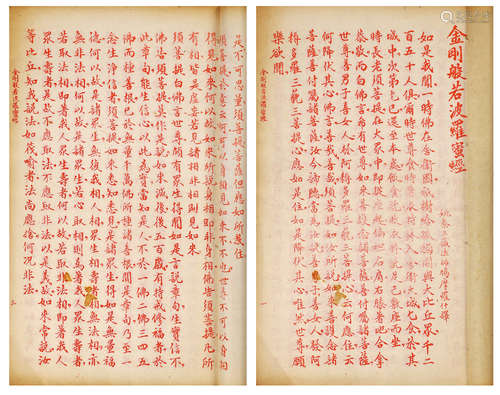 金剛般若波羅蜜經
姚秦三藏法師鳩摩羅什譯
如是我聞一時佛在舍衛國祇樹給孤獨園與大比丘衆千二
百五十人俱爾時世尊食時著衣持鉢入舍衛大城乞食於其
城中次第乞已還至本處飯食訖收衣鉢洗足已敷座而坐
時長老須菩提在大衆中即從座起偏袒右肩右膝著地合掌
恭敬而白佛言希有世尊如來善護念諸菩薩善付囑諸菩薩
世尊善男子善女人發阿耨多羅三藐三菩提心云何應住云
何降伏其心佛言善哉善哉須菩提如汝所說如來善護念諸
菩薩善付囑諸菩薩汝今諦聽當為汝說善男子善女人發阿
耨多羅三藐三菩提心應如是住如是降伏其心唯然世尊願
樂欲聞
金剛般若波羅蜜經
一
是不可思量須菩提菩薩但應如所教住
須菩提於意云何可以身相見如來不不也世尊不可以身相
得見如來何以故如來所說身相即非身相佛告須菩提凡所
有相皆是虛妄若見諸相非相則見如來
須菩提白佛言世尊頗有衆生得聞如是言說章句生實信不
佛告須菩提莫作是說如來滅後後五百歲有持戒修福者於
此章句能生信心以此為實當知是人不於一佛二佛三四五
佛而種善根已於無量千萬佛所種諸善根聞是章句乃至一
念生淨信者須菩提如來悉知悉見是諸衆生得如是無量福
德何以故是諸衆生無復我相人相衆生相壽者相無法相亦
無非法相何以故是諸衆生若心取相則為著我人衆生壽者
若取法相即著我人衆生壽者何以故若取非法相即著我人
衆生壽者是故不應取法不應取非法以是義故如來常說汝
等比丘知我說法如筏喻者法尚應捨何況非法
金剛般若波羅蜜經
三